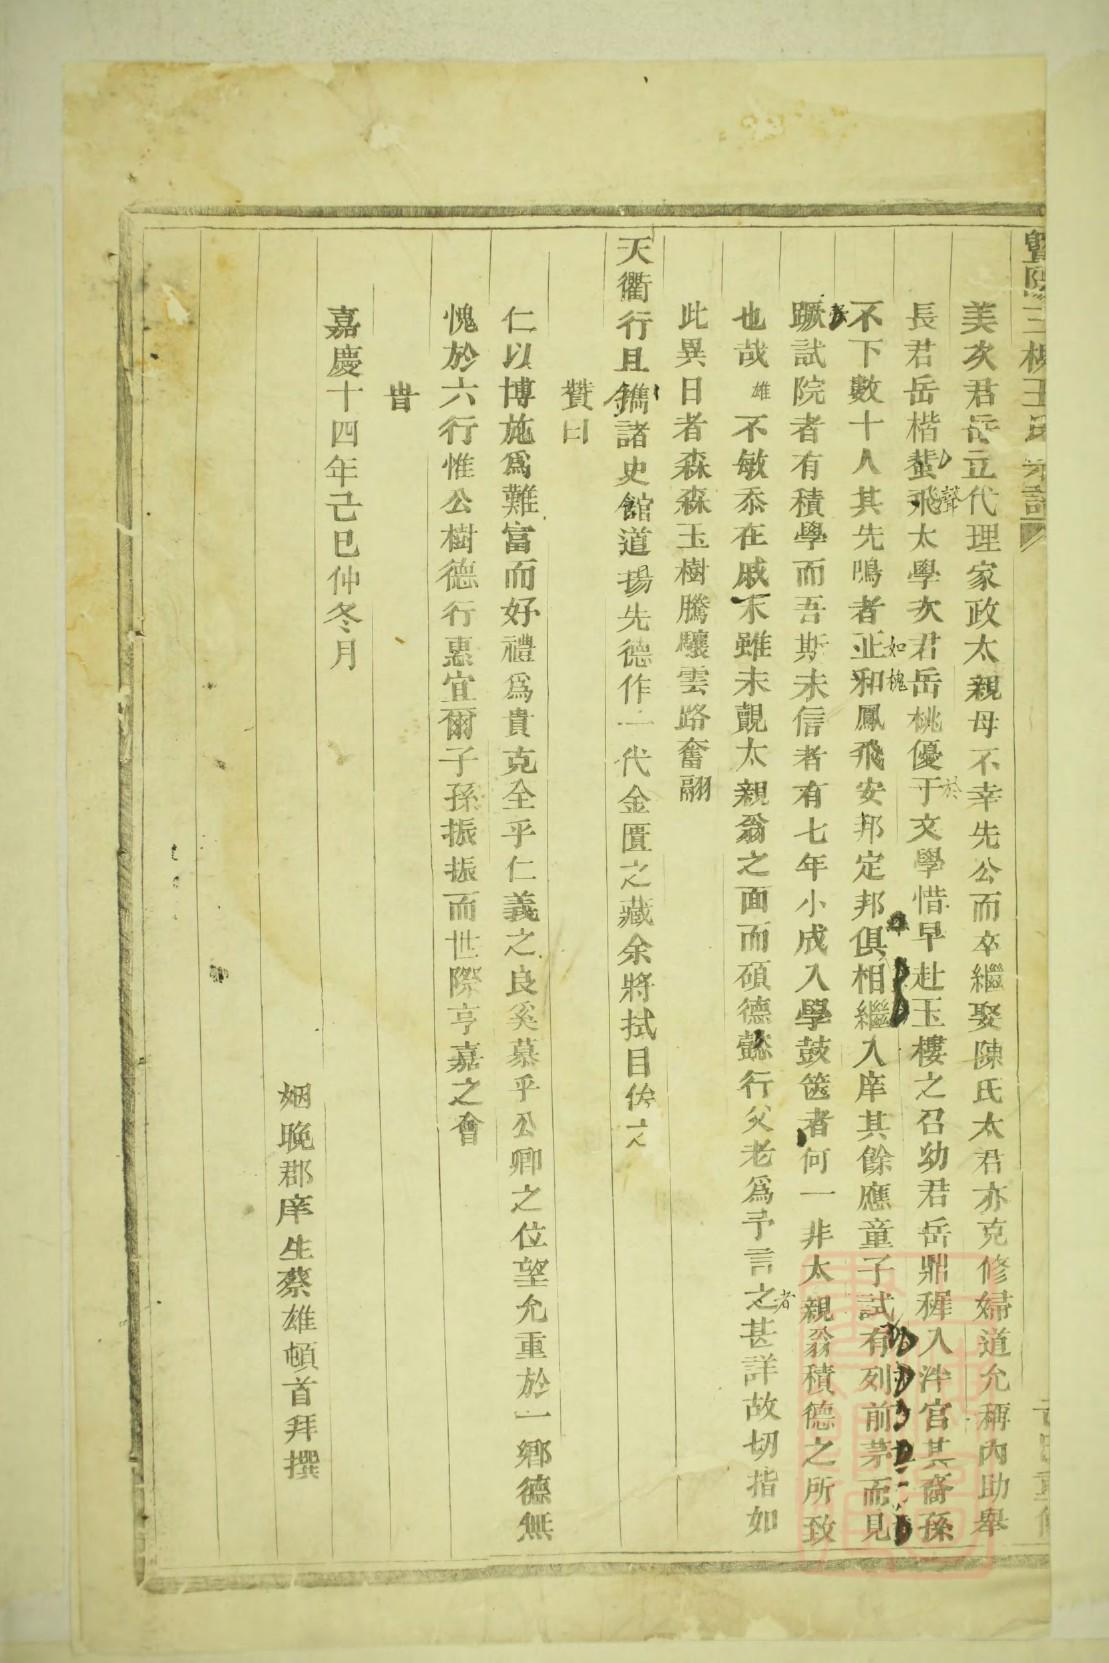 暨陽三槐王氏宗譜
美次君岳立代理家政太親母不幸先公而卒繼娶陳氏太君亦克修婦道允稱內助舉
長君岳楷蜚飛太學次君岳桃優于文學惜早赴玉樓之召幼君岳鼎穉入泮宮其裔孫
聲
如槐
於
不下數十人其先鳴者並和鳳飛安邦定邦俱相繼入庠其餘應童子試有列前茅而見
蹶試院者有積學而吾斯未信者有七年小成入學鼓篋者何一非太親翁積德之所致
也哉雄不敏忝在戚末雖未覿太親翁之面而碩德懿行父老爲予言之甚詳故切指如
者
此異日者森森玉樹騰驤雲路奮翮
天衢行且鐫諸史館道揚先德作一代金匱之藏余將拭目俟之
贊曰
仁以博施爲難富而好禮爲貴克全乎仁義之良奚慕乎公卿之位望允重於一鄉德無
愧於六行惟公樹德行惠宜爾子孫振振而世際亨嘉之會
旹
嘉慶十四年己巳仲冬月
姻晚郡庠生蔡雄頓首拜撰